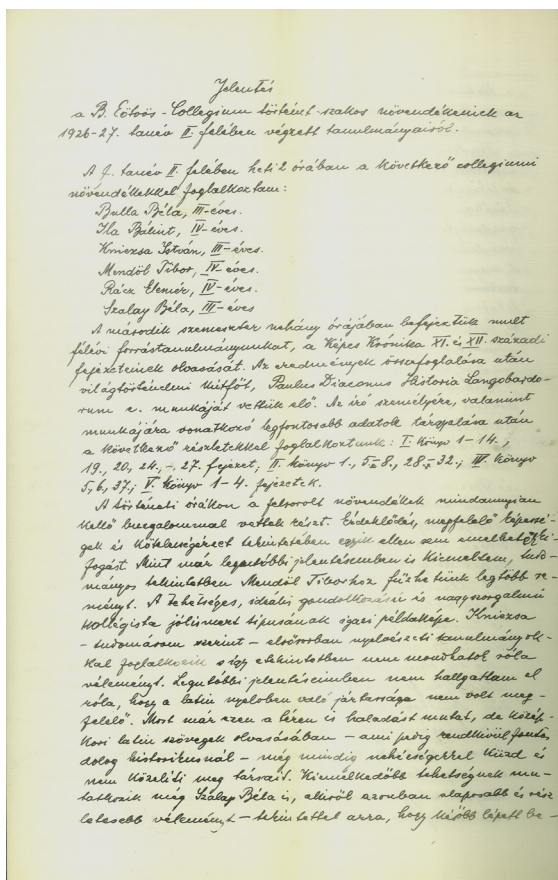 Jelentés
a B. Eötvös-Collegium történet-szakos növendékeinek az
1926-27. tanév II. felében végzett tanulmányairól.
A f. tanév II. felében heti 2 órában a következő collegiumi
növendékekkel foglalkoztam:
Bulla Béla, III-éves.
Ila Bálint, IV-éves.
Kniezsa István, III-éves.
Mendöl Tibor, IV-éves.
Rácz Elemér, IV-éves.
Szalay Béla, III-éves
A második szemeszter néhány órájában befejeztük mult
félévi forrástanulmányunkat, a Képes Krónika XI. és XII. századi
fejezeteinek olvasását. Az eredmények összefoglalása után
világtörténelmi kútfőt, Paulus Diaconus Historia Langobardo-
rum c. munkáját vettük elő. Az író személyére, valamint
munkájára vonatkozó legfontosabb adatok tárgyalása után
a következő részletekkel foglalkoztunk: I. könyv 1-14.,
19., 20., 24., 27. fejezet; II. könyv 1., 5-8., 28-32.; III. könyv
5., 6., 37.; V. könyv 1-4. fejezetek.
A történeti órákon a felsorolt növendékek mindannyian
kellő buzgalommal vettek részt. Érdeklődés, megfelelő képessé-
gek és kötelességérzet tekintetében egyik ellen sem emelhető ki-
fogást. Mint már legutóbbi jelentésemben is kiemeltem, tudo-
mányos tekintetben Mendöl Tiborhoz fűzhetünk legtöbb re-
ményt. A tehetséges, ideális gondolkozású és nagyszorgalmú
kollégista jólismert típusának igazi példaképe. Kniezsa
- tudomásom szerint - elsősorban nyelvészeti tanulmányok-
kal foglalkozik s így e tekintetben nem mondhatok róla
véleményt. Legutóbbi jelentésemben nem hallgattam el
róla, hogy a latin nyelvben való jártassága nem volt meg-
felelő. Most már ezen a téren is haladást mutat, de közép-
kori latin szövegek olvasásában - ami pedig rendkívül fontos
dolog historikusnál - még mindig nehézségekkel küzd és
nem közelíti meg társait. Kiemelkedőbb tehetségnek mu-
tatkozik még Szalay Béla is, akiről azonban alaposabb és rész-
letesebb véleményt - tekintettel arra, hogy később lépett be -